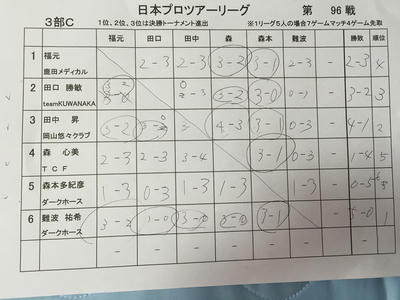 日本プロツアーリーグ 第 96 戦
3部C 1位、2位、3位は決勝トーナメント進出 ※1リーグ5人の場合7ゲームマッチ4ゲーム先取
福元 田口 田中 森 森本 難波 勝敗 順位
1 福元 鹿田メディカル 2-3 2-3 3-2 3-1 - 2-3 4
2 田口 勝敏 teamKUWANAKA 3-0 0-3 - 3-2 3
3 田中 昇 岡山悠々クラブ 3-2 4-3 3-1 0-3 - 4-1 2
4 森 心美 TCF 2-3 2-3 3-4 3-1 - 1-4 5
5 森本多紀彦 ダークホース 1-3 0-3 1-3 1-3 1-3 - 0-5
6 難波 祐希 ダークホース 3-2 3-1 - 5-0 1
- - - - - - - -